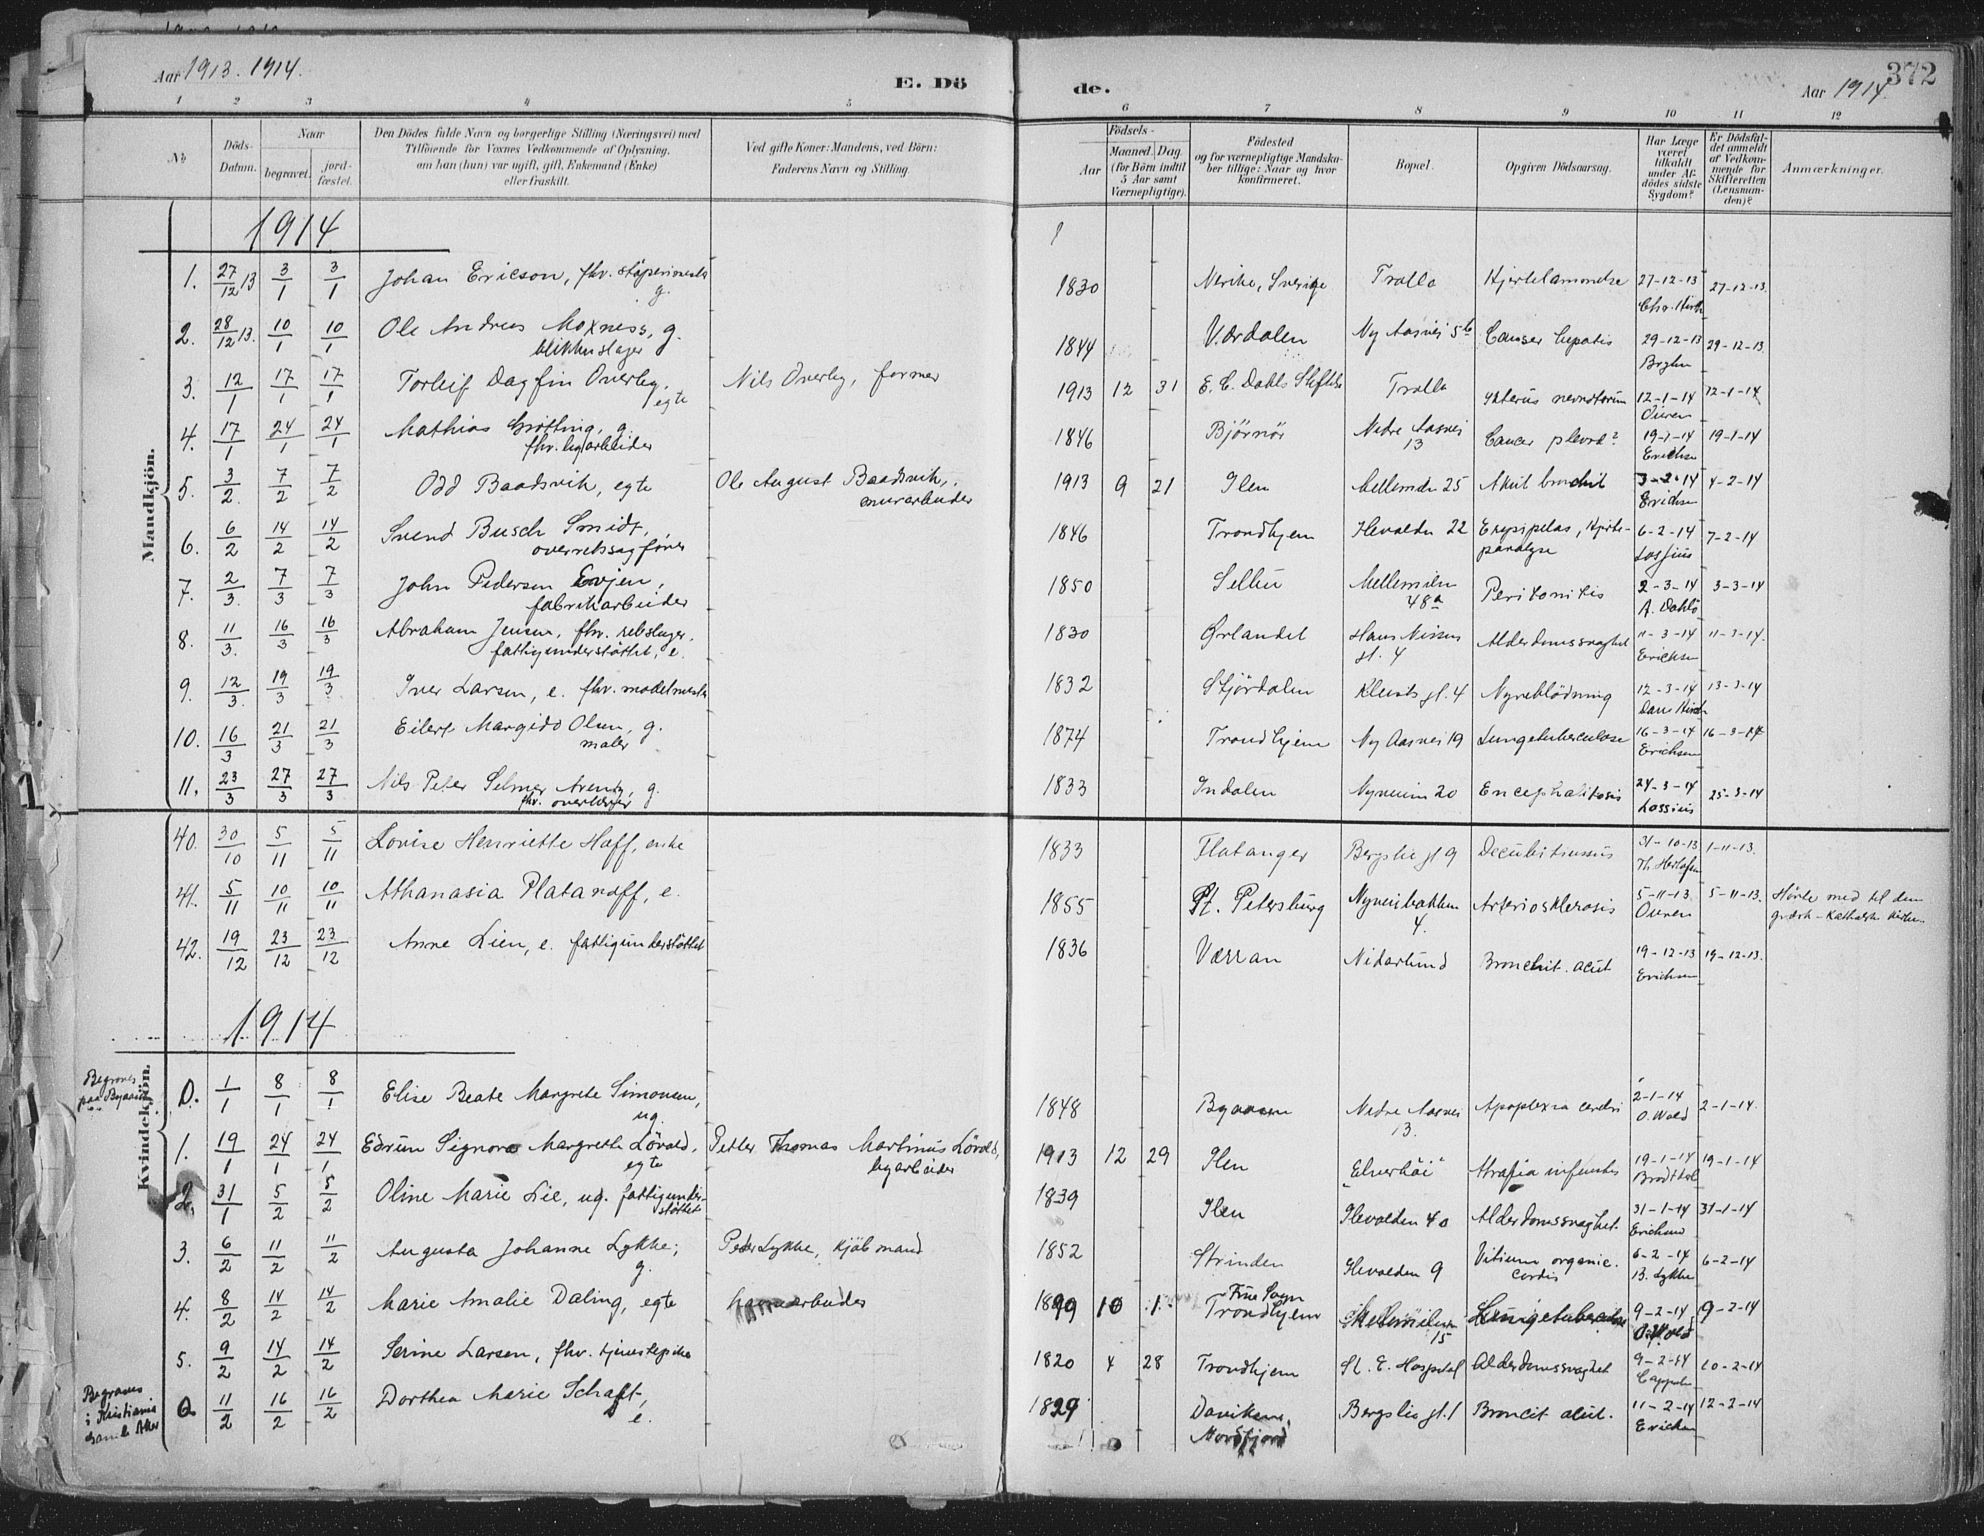 Aar 1913. 1914.
E. Dö
de.
Aar 1914.
372
1 2 3 4 5 6 7 8 9 10 11 12
No
Döds-
Datum.
Naar
begravet.
jord-
fæstet.
Den Dödes fulde Navn og borgerlige Stilling (Næringsvei) med
Tilföiende for Voxnes Vedkommende af Oplysning,
om han (hun) var ugift, gift, Enkemand (Enke)
eller fraskilt.
Ved gifte Koner: Mandens, ved Börn:
Faderens Navn og Stilling.
Födsels-
Aar
Maaned. Dag.
(for Börn indtil
5 Aar samt
Værnepligtige).
Födested
og for værnepligtige Mandska-
ber tillige: Naar og hvor
konfirmeret.
Bopæl.
Opgiven Dödsaarsag.
Har Læge
været
tilkaldt
under Af-
dödes sidste
Sygdom?
Er Dödsfal-
det anmeldt
af Vedkom-
mende for
Skifteretten
(Lensman-
den)?
Anmærkninger.
Mandkjön.
1914
1. 27/12 13 3/1 3/1 Johan Ericson, fhv. støperimester g. 1830 Nerike, Sverige Trolla Hjertelamendse 27-12-13 Chr. Hirth 27-12-13.
2. 28/12 13. 10/1 10/1 Ole Andreas Moxness, g. blikkenslager 1844 Værdalen Ny Aasvei 5b Canser hepatis 29-12-13 29-12-13.
3. 12/1 17/1 17/1 Torleif Dagfin Overby, egte Nils Overby, former 1913 12 31 E. C. Dahls Stiftelse Trolla Ikterus neonatorum 12-1-14 Ouren 12-1-14
4. 17/1 24/1 24/1 Mathias Grøtting, g. fhv. byarbeider 1846 Bjørnør Nedre Aasvei 13 Cancer pleura? 19-1-14 Erichsen 19-1-14
5. 3/2 7/2 7/2 Odd Baadsvik, egte Ole August Baadsvik, murarbeider 1913 9 21 Ilen Mellemila 25 Akut bronchit 3-2-14 Erichsen 4-2-14
6. 6/2 14/2 14/2 Svend Busch Smidt, overretssagfører 1846 Trondhjem Ilevolden 22 Erysipelas, Hjerte-paralyse 6-2-14 Lossius 7-2-14
7. 2/3 7/3 7/3 John Pedersen Evjen, fabrikarbeider 1850 Selbu Mellemilen 48a Peritonitis 2-3-14 A. Dahls 3-3-14
8. 11/3. 16/3 16/3 Abraham Jensen, fhv. rebslager. fattigunderstøttet, e. 1830 Ørlandet Hans Nissens gt. 4 Alderdomssvaghet 11-3-14 Erichsen 11-3-14.
9. 12/3. 19/3 19/3 Iver Larsen, e. fhv. modelmester 1832 Stjørdalen Kleists gt. 4 Nyreblödning 12-3-14 13-3-14
10. 16/3 21/3 21/3 Eilert Margido Olsen, g. maler 1874 Trondhjem Ny Aasvei 19 Lungetuberculose 16-3-14 Erichsen 16-3-14
11. 23/3 27/3 27/3 Nils Peter Selmer Arentz, g. fhv. overlærer 1833 Indalen Nyveien 20 Encephalitosis 24-3-14 Lossius 25-3-14
Kvindekjön.
40. 30/10 5/11 5/11 Lovise Henriette Haff, enke 1833 Flatanger Bergslie gt 9 Decubitussus 31-10-13 1-11-13.
41. 5/11 10/11 10/11 Athanasia Platanoff, e. 1855 St. Petersburg Nyveisbakken 4. Arteriosklerosis 5-11-13 Ouren 5-11-13. Hørte med til den græsk-katholske kirken.
42. 19/12 23/12 23/12 Anne Lien, e. fattigunderstøttet 1836 Værran Nidarlund Bronchit. acut 19-12-13 Erichsen 19-12-13.
1914
Begraves paa Byaasen
0. 1/1 8/1 8/1 Elise Beate Margrete Simonsen, ug. 1848 Byaasen Nedre Aasvei 13. Apoplexia cerebri 2-1-14 O. Wold 2-1-14.
1. 19/1 24/1 24/1 Edrun Signora Margrethe Løvold, egte Petter Thomas Martinus Løvold, byarbeider 1913 12 29 Ilen "Elverhøi" Atrofia infantis 19-1-14 19-1-14
2. 31/1 5/2 5/2 Oline Marie Lie, ug. fattigunder-støttet 1839 Ilen Ilevolden 40 Alderdomssvaghet 31-1-14 Erichsen 31-1-14
3. 6/2 11/2 11/2 Augusta Johanne Lykke, g. Peder Lykke, kjøbmand 1852 Strinden Ilevolden 9 Vitium organic. cordis 6-2-14 B. Lykke 6-2-14
4. 8/2 14/2 14/2 Marie Amalie Daling, egte 1899 10 1 Frue Sogn Trondhjem Mellemilen 15 Lungetuberculose 9-2-14 O. Wold 9-2-14
5. 9/2 14/2 14/2 Serine Larsen, fhv. tjenestepike 1820 4 28 Trondhjem St. E. Hospital Alderdomssvaghet 9-2-14 Cappelen 10-2-14
Begraves i Kristiania Gamle Aker
0 11/2 16/2 16/2 Dorthea Marie Schaft, e. 1829 Daviken, Nordfjord Bergslis gt. 1 Broncit acut. 11-2-14 Erichsen 12-2-14